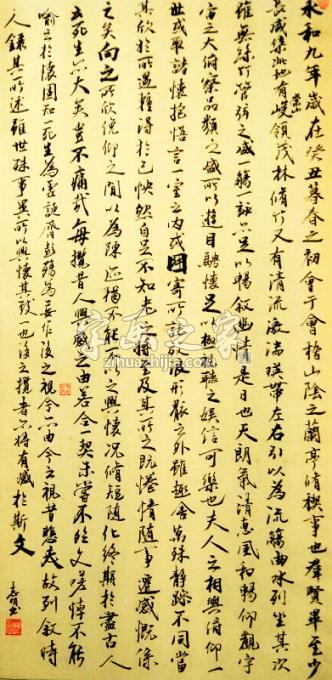 永和九年歲在癸丑暮春之初會于會稽山陰之蘭亭脩禊事也群賢畢至少
長咸集此地有崇山峻領茂林脩竹又有清流激湍暎帶左右引以為流觴曲水列坐其次
雖無絲竹管弦之盛一觴一詠亦足以暢敘幽情是日也天朗氣清惠風和暢仰觀宇
宙之大俯察品類之盛所以遊目騁懷足以極視聽之娛信可樂也夫人之相與俯仰一
世或取諸懷抱悟言一室之內或因寄所託放浪形骸之外雖趣舍萬殊靜躁不同當
其欣於所遇暫得於己怏然自足不知老之將至及其所之既惓情隨事遷感慨係
之矣向之所欣俛仰之間以為陳迹猶不能不以之興懷況脩短隨化終期於盡古人
云死生亦大矣豈不痛哉每攬昔人興感之由若合一契未嘗不臨文嗟悼不能
喻之於懷固知一死生為虛誕齊彭殤為妄作後之視今亦由今之視昔悲夫故列敘時
人錄其所述雖世殊事異所以興懷其致一也後之攬者亦將有感於斯文
字画之家
www.zihuazhijia.com